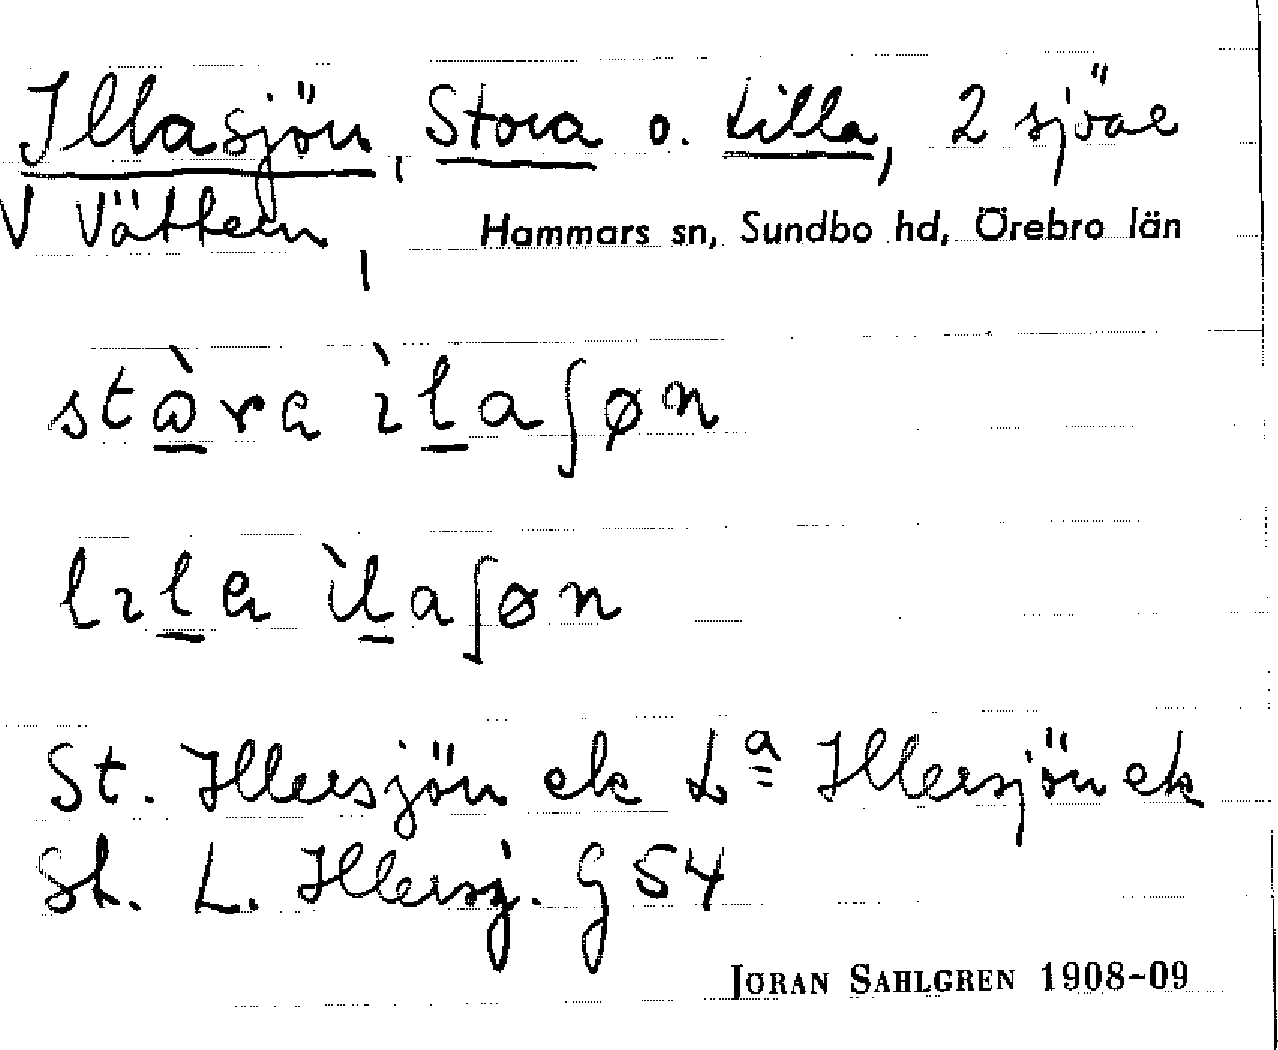 Illasjön, Stora o. Lilla, 2 sjöar
V Vättern, Hammars sn, Sundbo hd, Örebro län
stὼra ɩ̀laʃøn
lɩla ɩ̀laʃøn
St. Illersjön ek La Illersjön ek
St. L. Illersj. G 54
JÖRAN SAHLGREN 1908-09